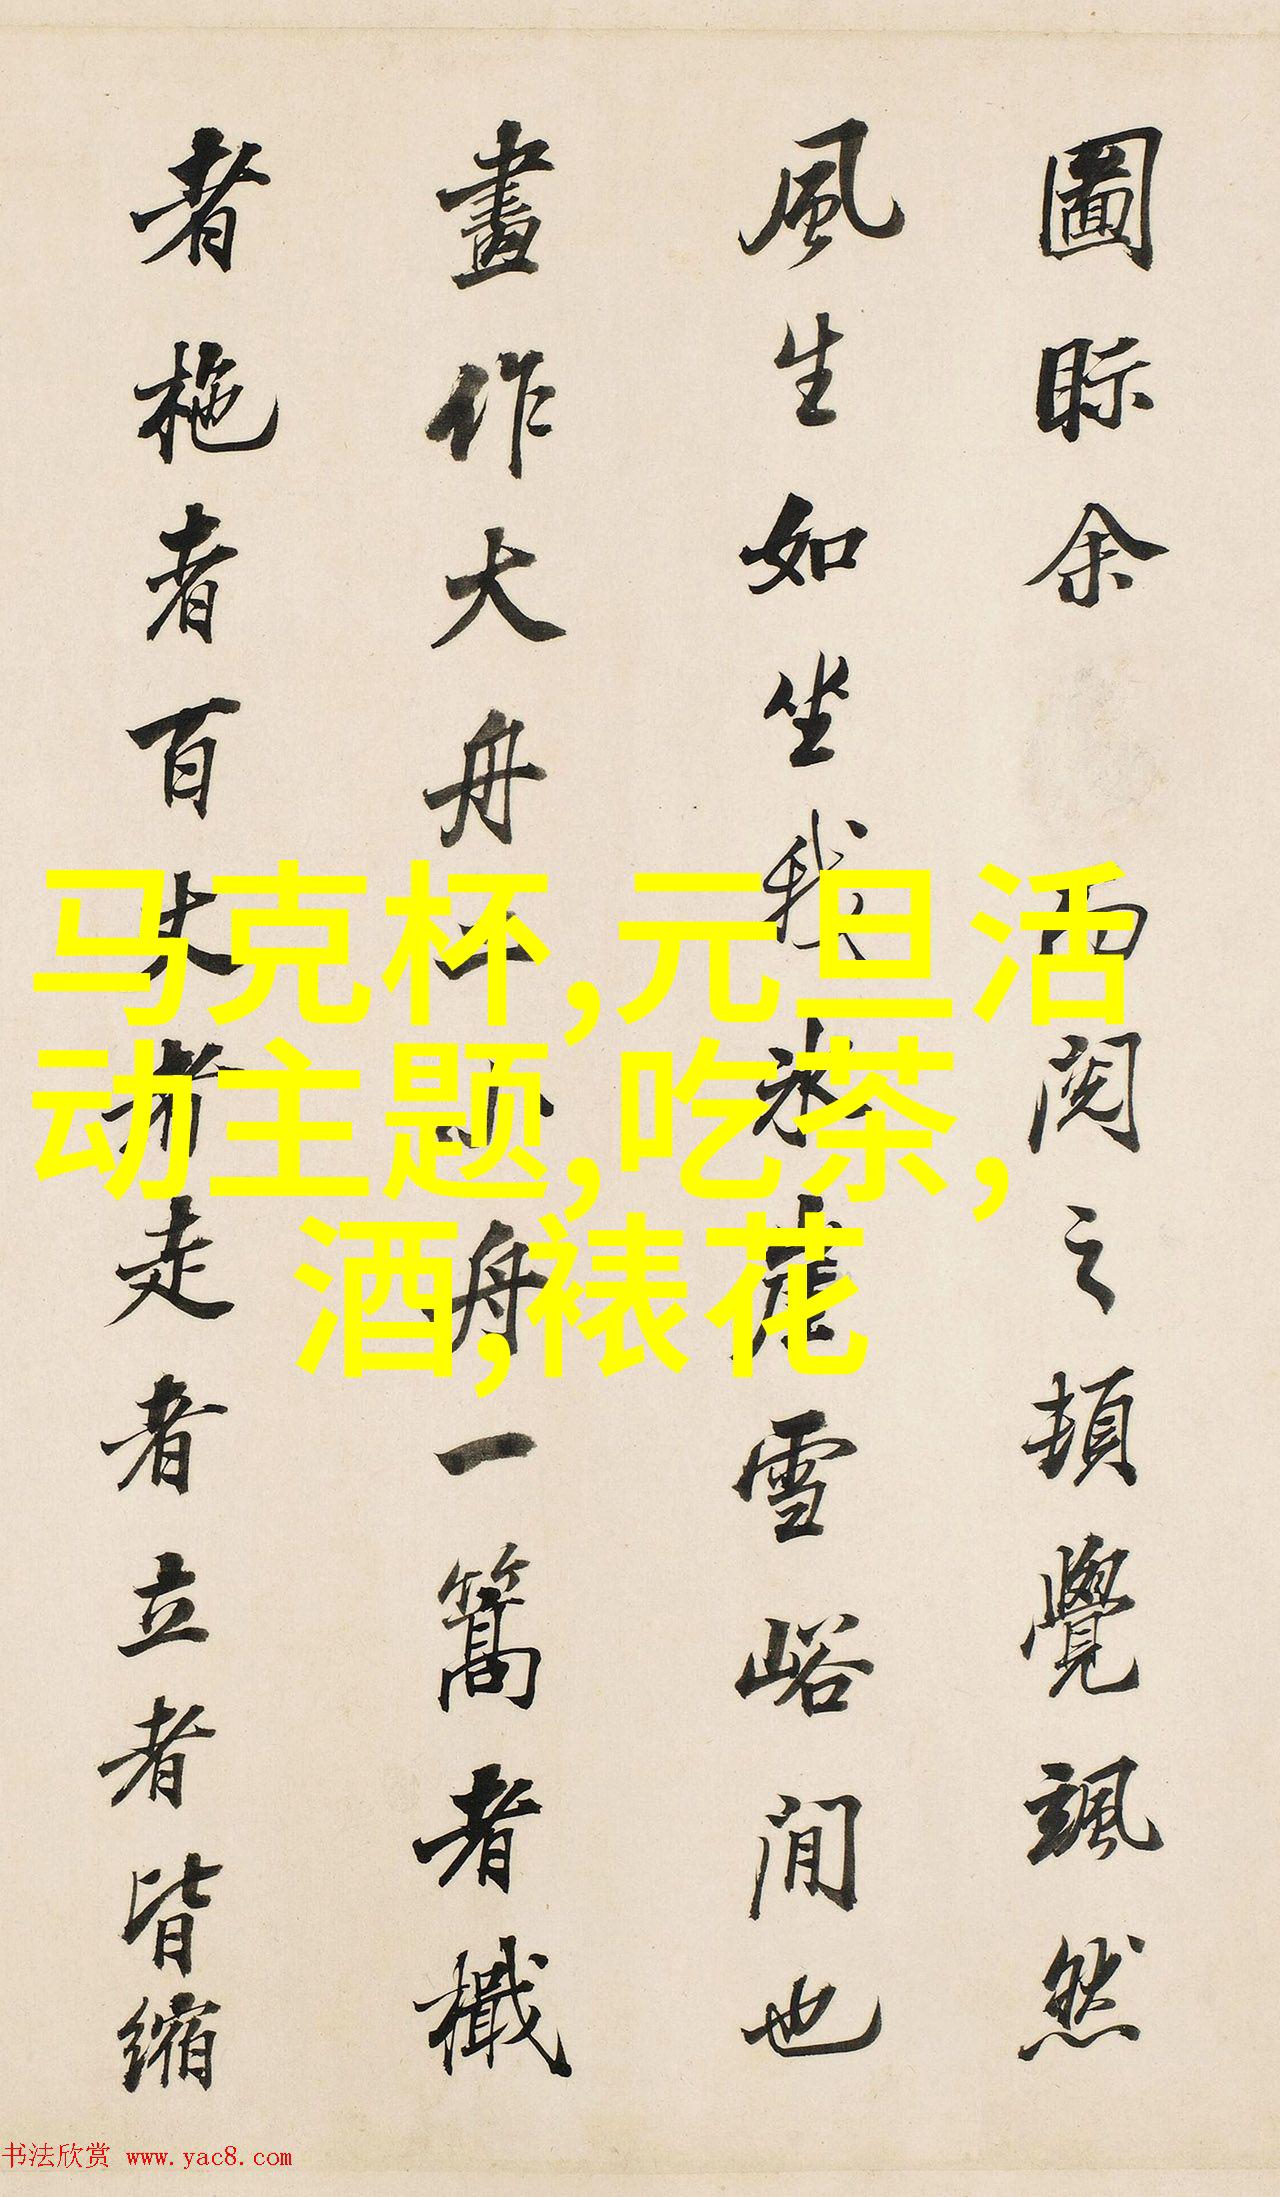 圖眎余而閱之頓覺颯然
風生如坐我冰崖雪峪間也
畫作大舟二小舟一篙者檝
者柂者百丈者走者立者皆縮
马克杯,元旦活
动主题,吃茶,
酒,裱花
书法欣赏 www.yac8.com